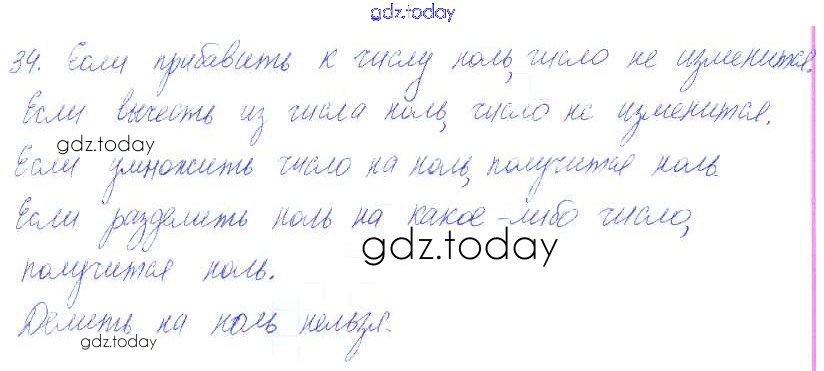 gdz.today
34. Если прибавить к числу ноль, число не изменится.
Если вычесть из числа ноль, число не изменится.
gdz.today
Если умножить число на ноль, получится ноль.
Если разделить ноль на какое-либо число,
gdz.today
получится ноль.
Делить на ноль нельзя.
gdz.today